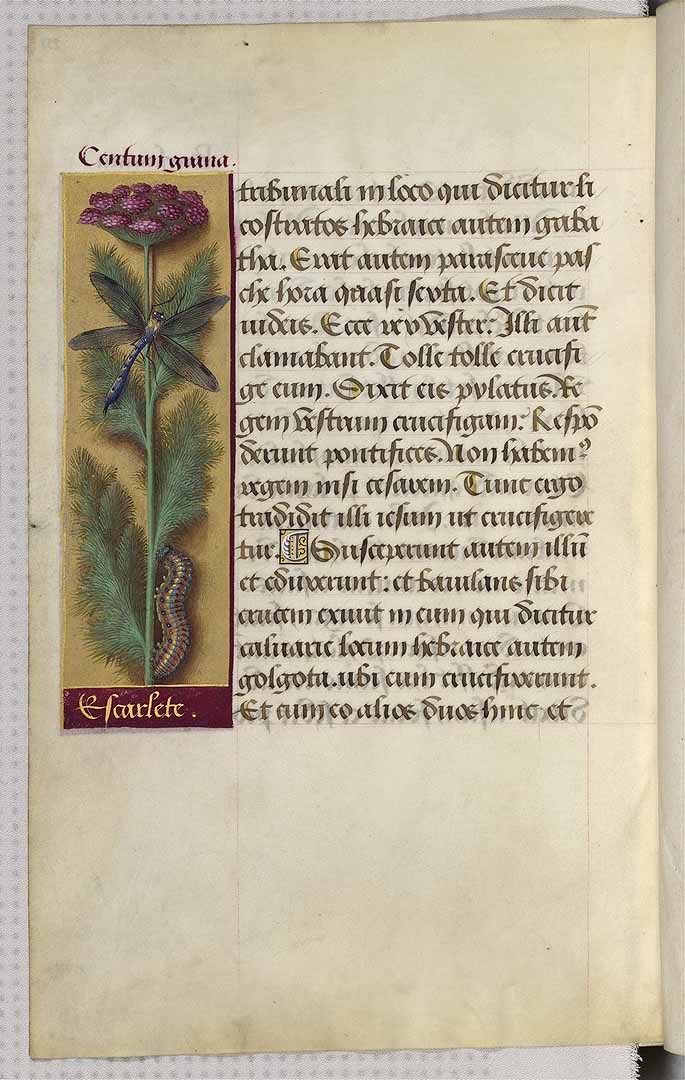 Centum grana.
tribunali in loco qui dicitur li
costratos hebraice autem gaba
tha. Erat autem parasceue pas
che hora quasi sexta. Et dicit
iudeis. Ecce rex vester: Illi aūt
clamabant. Tolle tolle crucifi
ge eum. Dixit eis pylatus. Re
gem vestrum crucifigam: Respō
derunt pontifices. Non habemꝰ
regem nisi cesarem. Tunc ergo
tradidit illi iesum ut crucifigere
tur. Susceperunt autem illū
et eduxerunt: et baiulans sibi
crucem exiuit in eum qui dicitur
caluarie locum hebraice autem
golgota. ubi eum crucifixerunt.
Et cum eo alios duos hinc et
Escarlete.